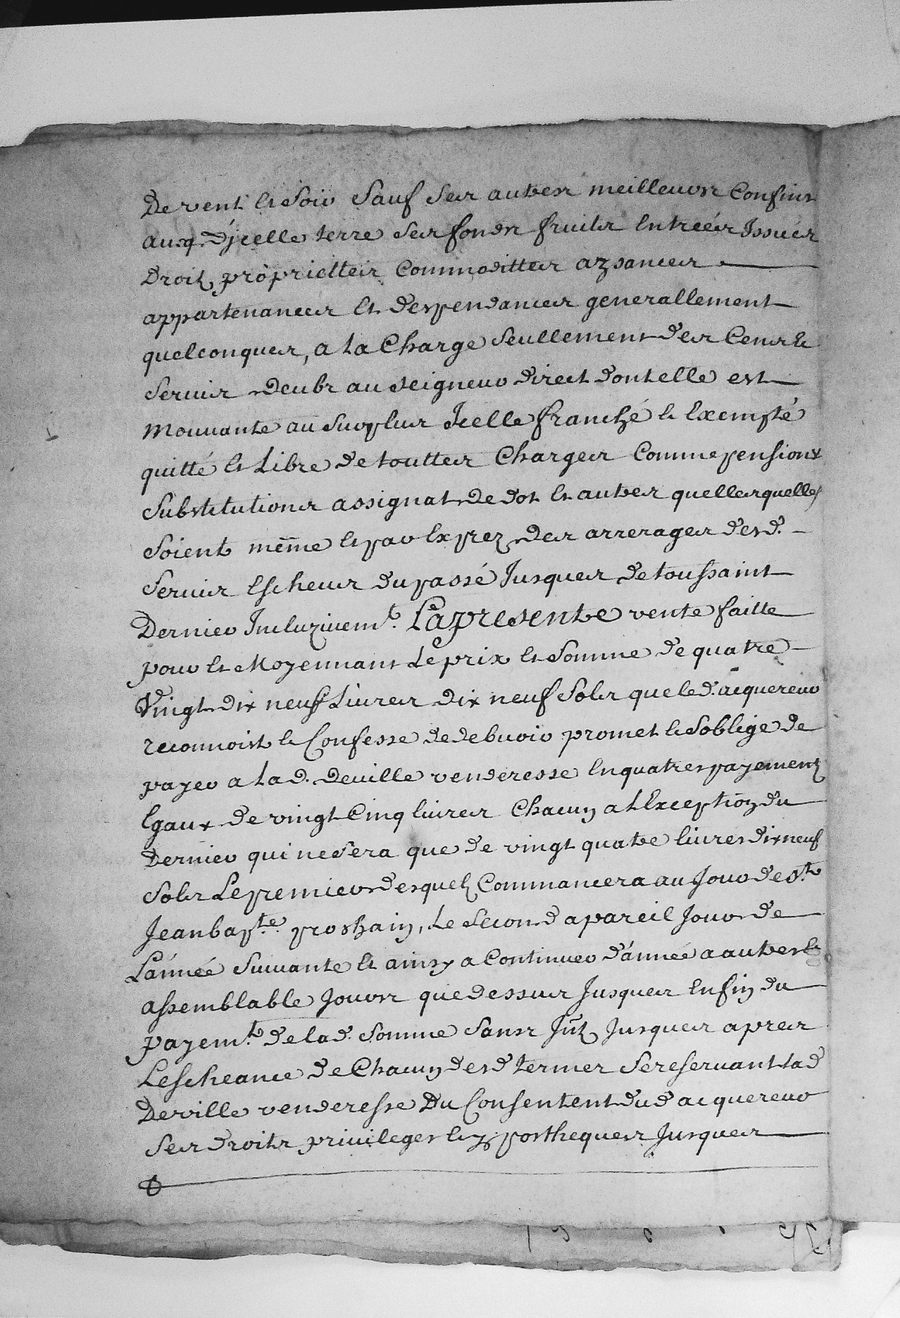 De vent et soir sauf ses autres meilleurs confins
avq. d'jcelle terre ses fonds fruits entrées Issües
Droits proprietter commoditter aysances
appartenances et despendances generallement
quelconques, a la Charge seullement des Cens et
servis deubz au seigneur direct dont elle est
mouvante au surplus Jcelle franché et Exempté
quitté et Libre de touttes Charges comme pensions
substitutions assignat de dot et autres quelles quelles
soient même et par Exprez des arrerages desd.
servis Escheus du passé Jusques de toussaint
Dernier Incluzivemt. La presente vente faitte
pour et Moyennant Le prix et somme de quatre
Vingt dix neuf Livres dix neuf sols que led. acquereur
reconnoist et Confesse de debvoir promet et soblige de
payer a lad. deville venderesse En quatres payements
Egaux de vingt Cinq livres Chacun a LException du
Dernier qui ne sera que de vingt quatre livres dix neuf
sols Le premier desquels Commancera au Jour de st.
Jean bapte. prochain, Le second a pareil Jour de
L'année suivante et ainsy a Continuer d'année a autre et
assemblable Jours que dessus Jusques Enfin du
payemt. de lad. somme sans Jnt. Jusques apres
Lescheance de Chacun desd. termes se reservant lad
Deville venderesse Du Consentent. dud. acquereur
ses droits privileges et yposthecques Jusques